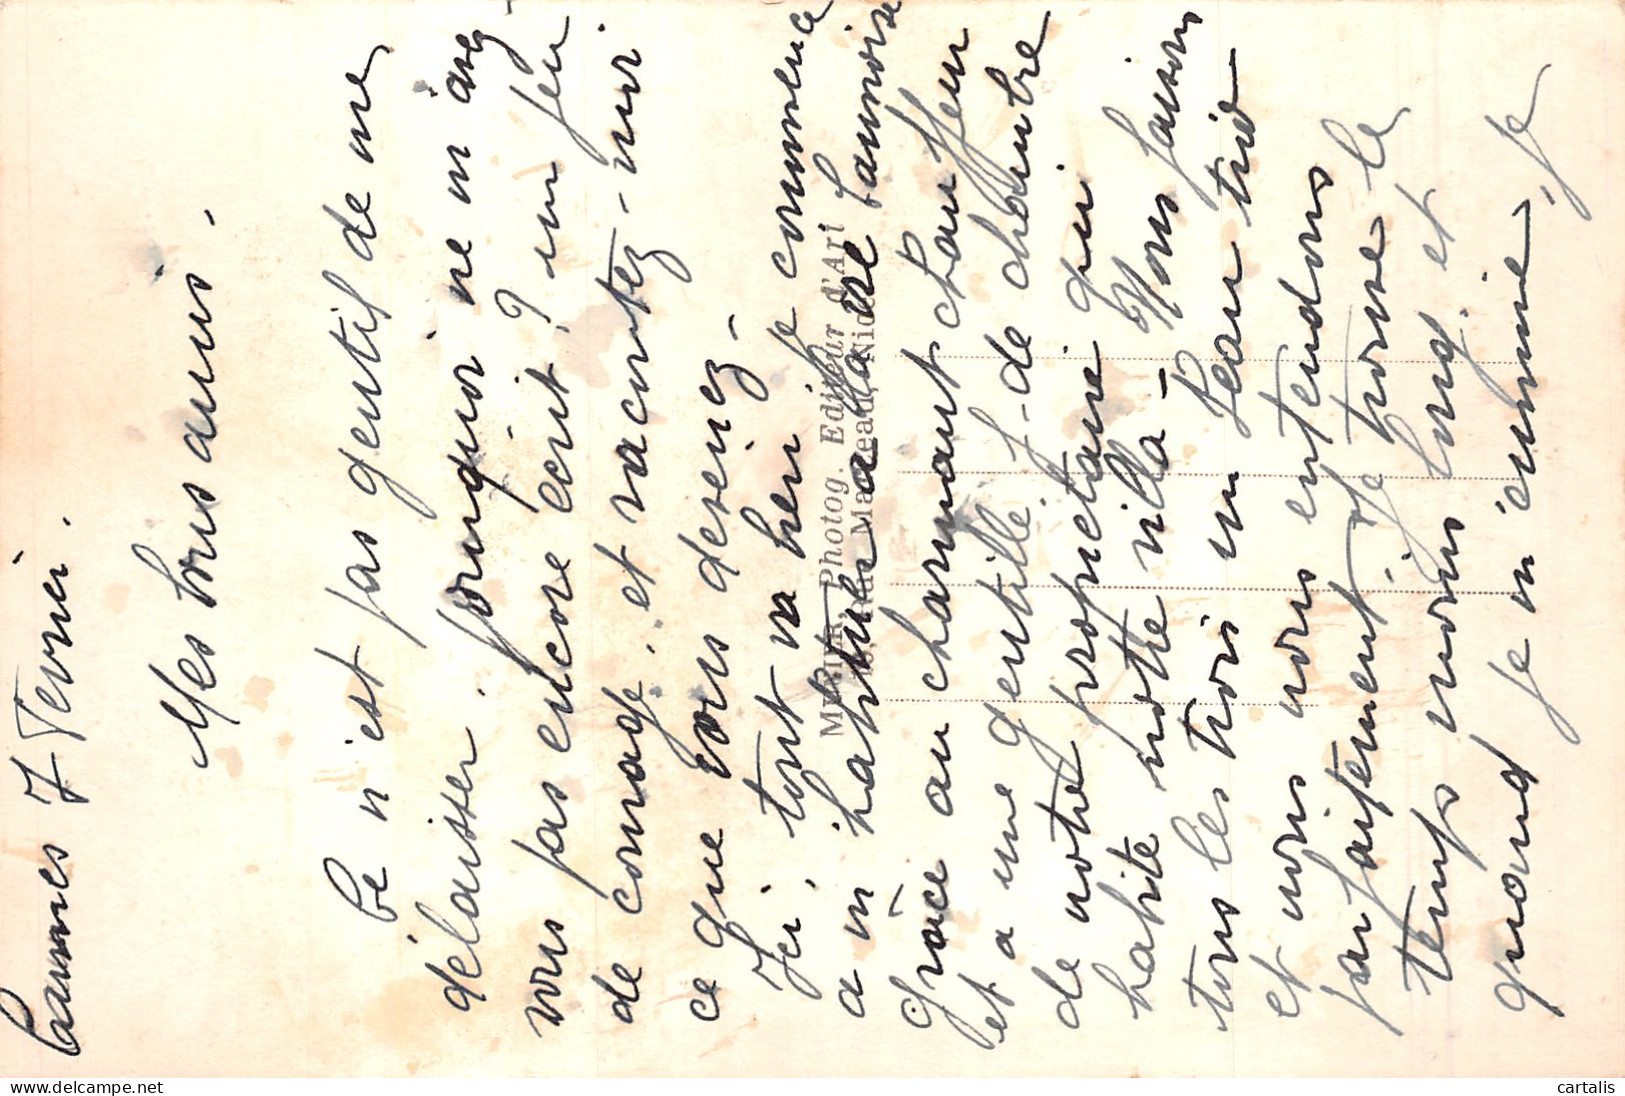 Cannes 7 Fevrier.
Mes bons amis.
Ce n'est pas gentil de me
délaisser. pourquoi ne m'avez
vous pas encore écrit? un peu
de courage. et racontez-moi
ce que vous devenez-
Ici, tout va bien je commence
a m'habituer a la vie Cannoise
Grâce au charmant chauffeur
et a une gentille f-de chambre
de notre propriétaire qui
habite notre villa- Nous faisons
tous les trois un beau trio
et nous nous entendons
parfaitement. je trouve le
temps moins long. et
quand je m'ennuie, je
Photog. Editeur d'Art
delcampe.net
cartalis